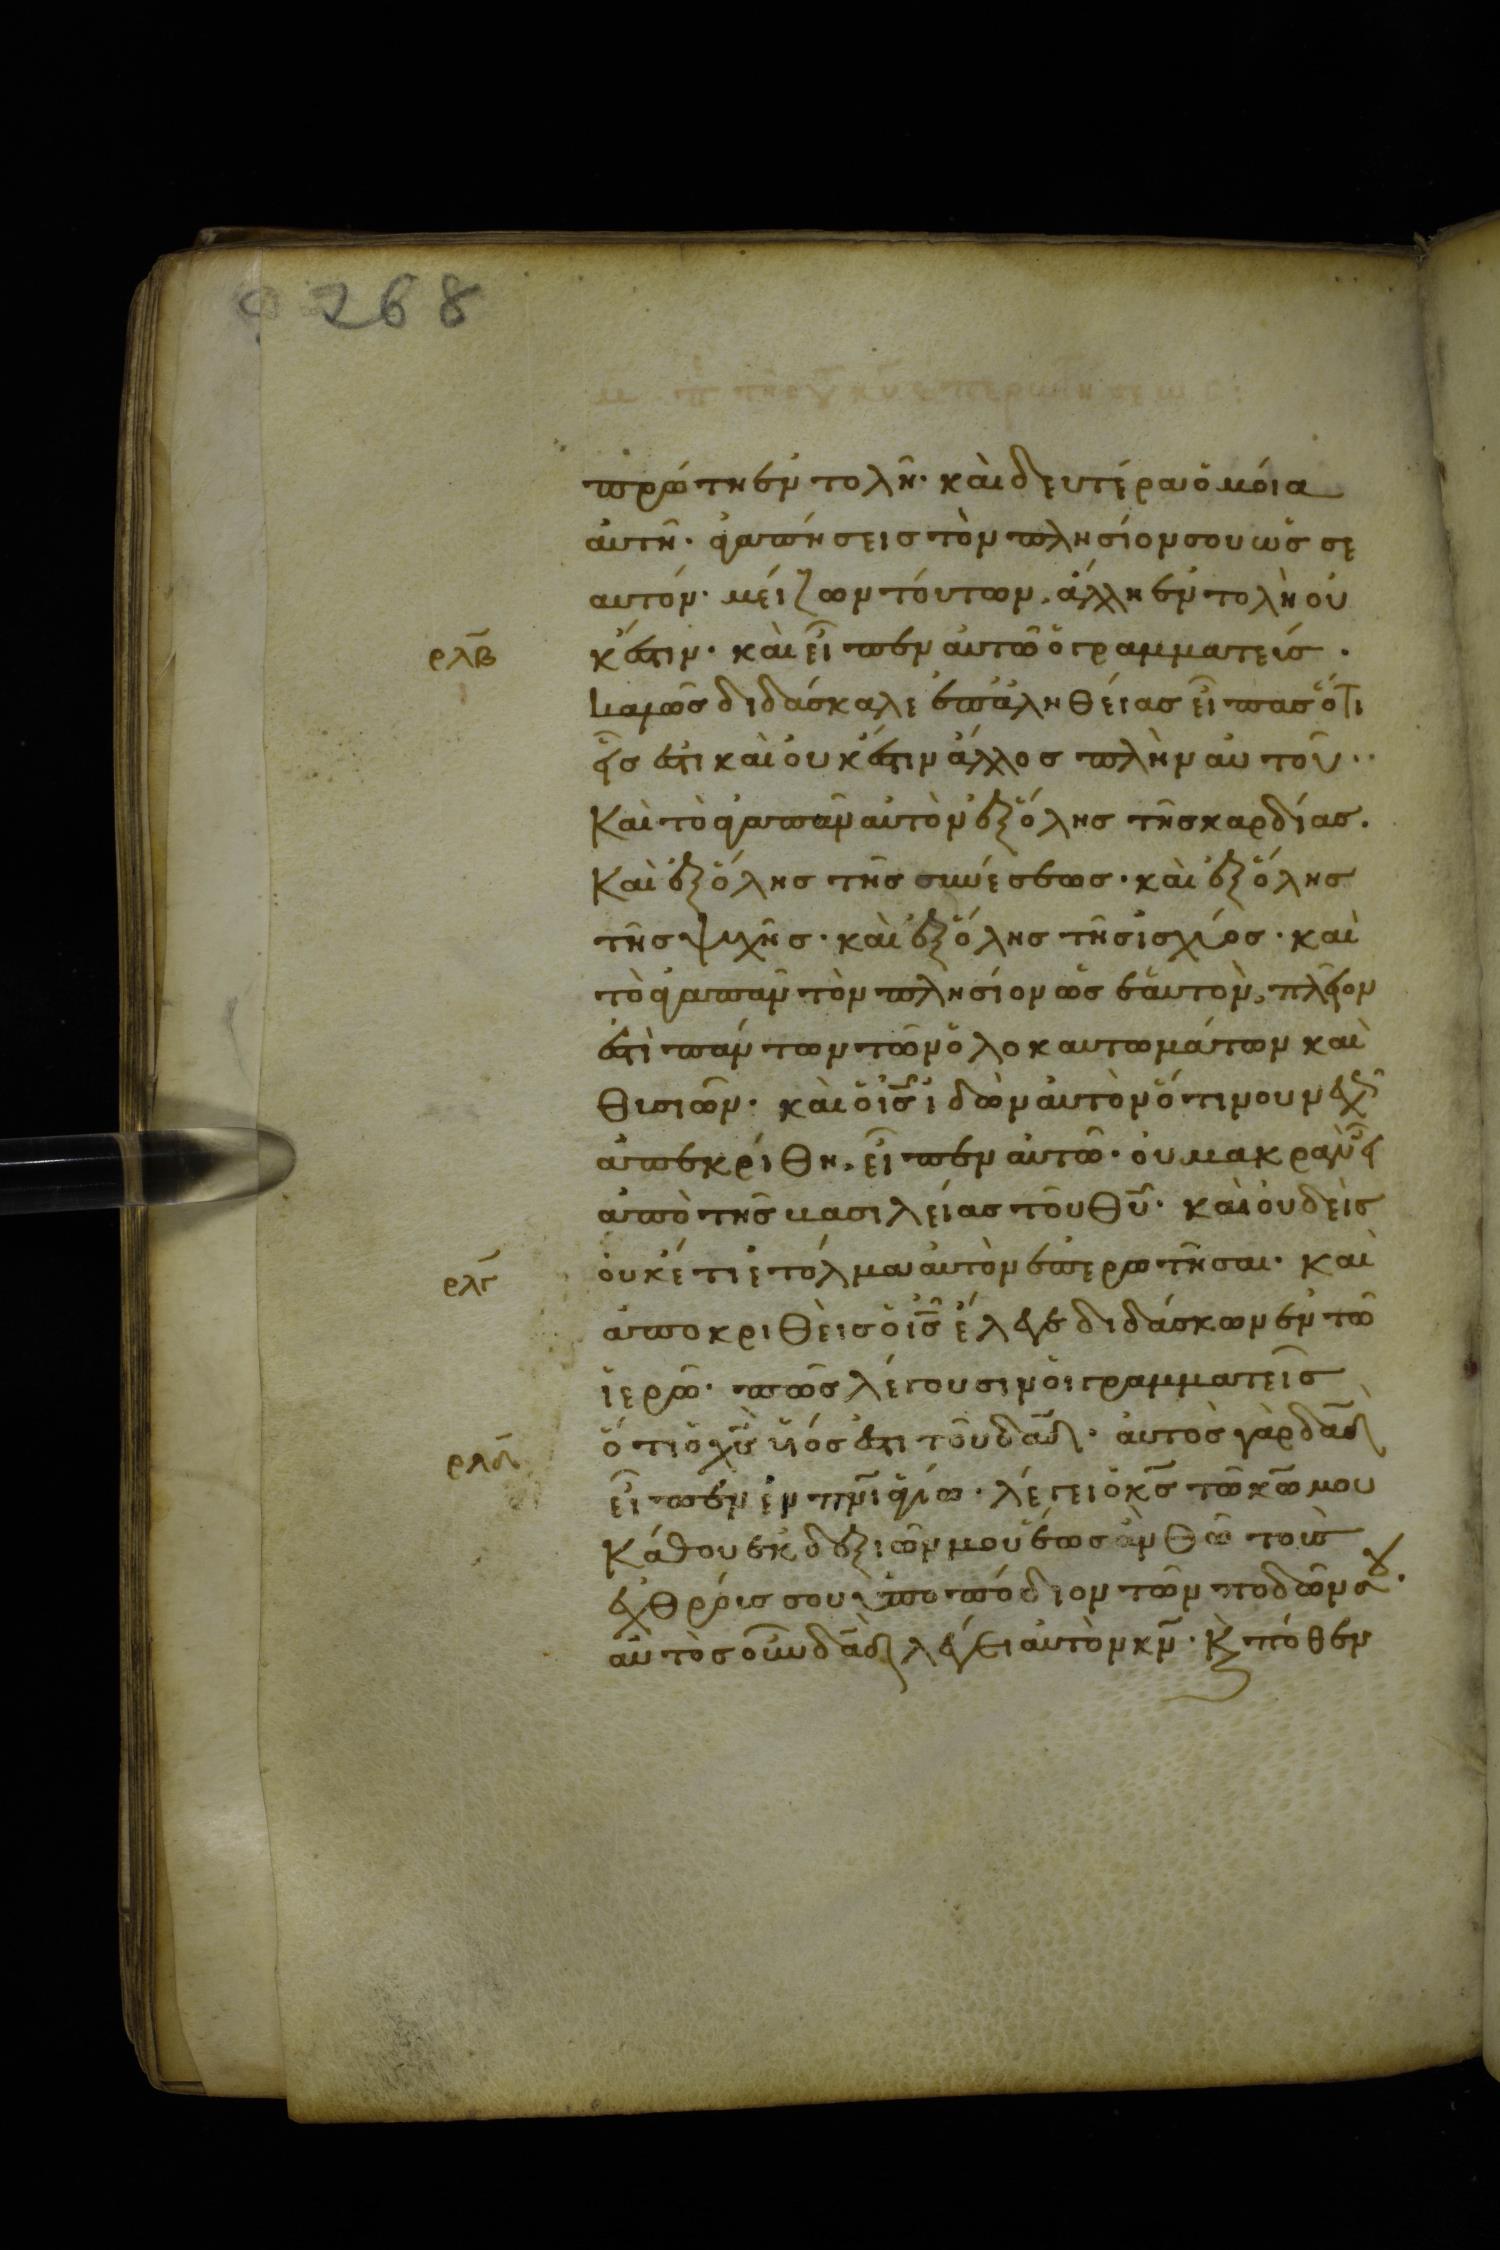 268
πρώτη ἐντολῆ· καὶ δευτέρα ὁμοία
ἀυτῆ· ἀγαπήσεισ τὸν πλησίον σου ὡσ σε
αυτόν· μείζων τόυτων, ἄλλη ἐντολὴ ὀυ
ρλβ κέστιν· καὶ εἶπεν ἀυτῶ ὁ γραμματεύσ·
καλῶσ διδάσκαλε ἐπ ἀληθείασ εἶπασ ὅτι
εἷσ ἐστι καὶ ὀυκ έστιν ἄλλοσ πλὴν ἀυτοῦ··
Καὶ τὸ ἀγαπᾶν αὐτὸν ἐξ ὅλησ τῆσ καρδίασ.
Καὶ ἐξ ὅλησ τῆσ συνέσεωσ· καὶ ἐξ ὅλησ
τῆσ ψυχῆσ· καὶ ἐξ ὅλησ τῆσ ἰσχύοσ· καὶ
τὸ ἀγαπᾶν τὸν πλησίον ὡσ ἑαυτὸν, πλεῖον
ἐστὶ πάντων τῶν ὁλοκαυτωμάτων καὶ
θυσιῶν· καὶ ὁ ισ ἰδὼν ἀυτὸν ὅτι νουνεχῶσ
ἀπεκρίθη, εἶπεν ἀυτῶ· ὀυ μακρὰν εἶ
ἀπὸ τῆσ βασιλείασ τοῦ θυ· καὶ ὀυδεὶσ
ρλγ ὀυκέτι ἐτόλμα ἀυτὸν ἐπερωτῆσαι· καὶ
ἀποκριθεὶσ ὁ ισ ἔλεγε διδάσκων ἐν τῶ
ἱερῶ· πῶσ λέγουσιν ὁι γραμματεῖσ
ρλδ ὅτι ὁ χσ ὑιόσ ἐστι τοῦ δαδ· ἀυτὸσ γὰρ δαδ
εἶπεν ἐν πνι ἁγίω· λέγει ὁ κσ τῶ κω μου
Κάθου ἐκ δεξιῶν μου ἕωσ ἀν θῶ τοὺσ
ἐχθρόυσ σου ὑποπόδιον τῶν ποδῶν σου·
αὐτὸσ οὖν δαδ λέγει ἀυτὸν κν· Κ πόθεν